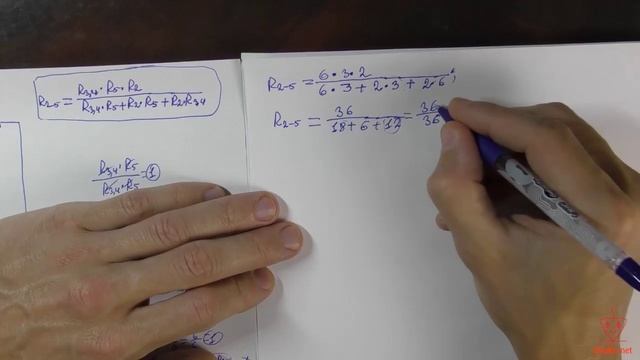 R₂₋₅ = (R₃,₄ · R₅ · R₂) / (R₃,₄ · R₅ + R₂ · R₅ + R₂ · R₃,₄)
(R₃,₄ · R₅) / (R₃,₄ · R₅) = 1
R₂₋₅ = (6 · 3 · 2) / (6 · 3 + 2 · 3 + 2 · 6);
R₂₋₅ = 36 / (18 + 6 + 12) = 36 / 36